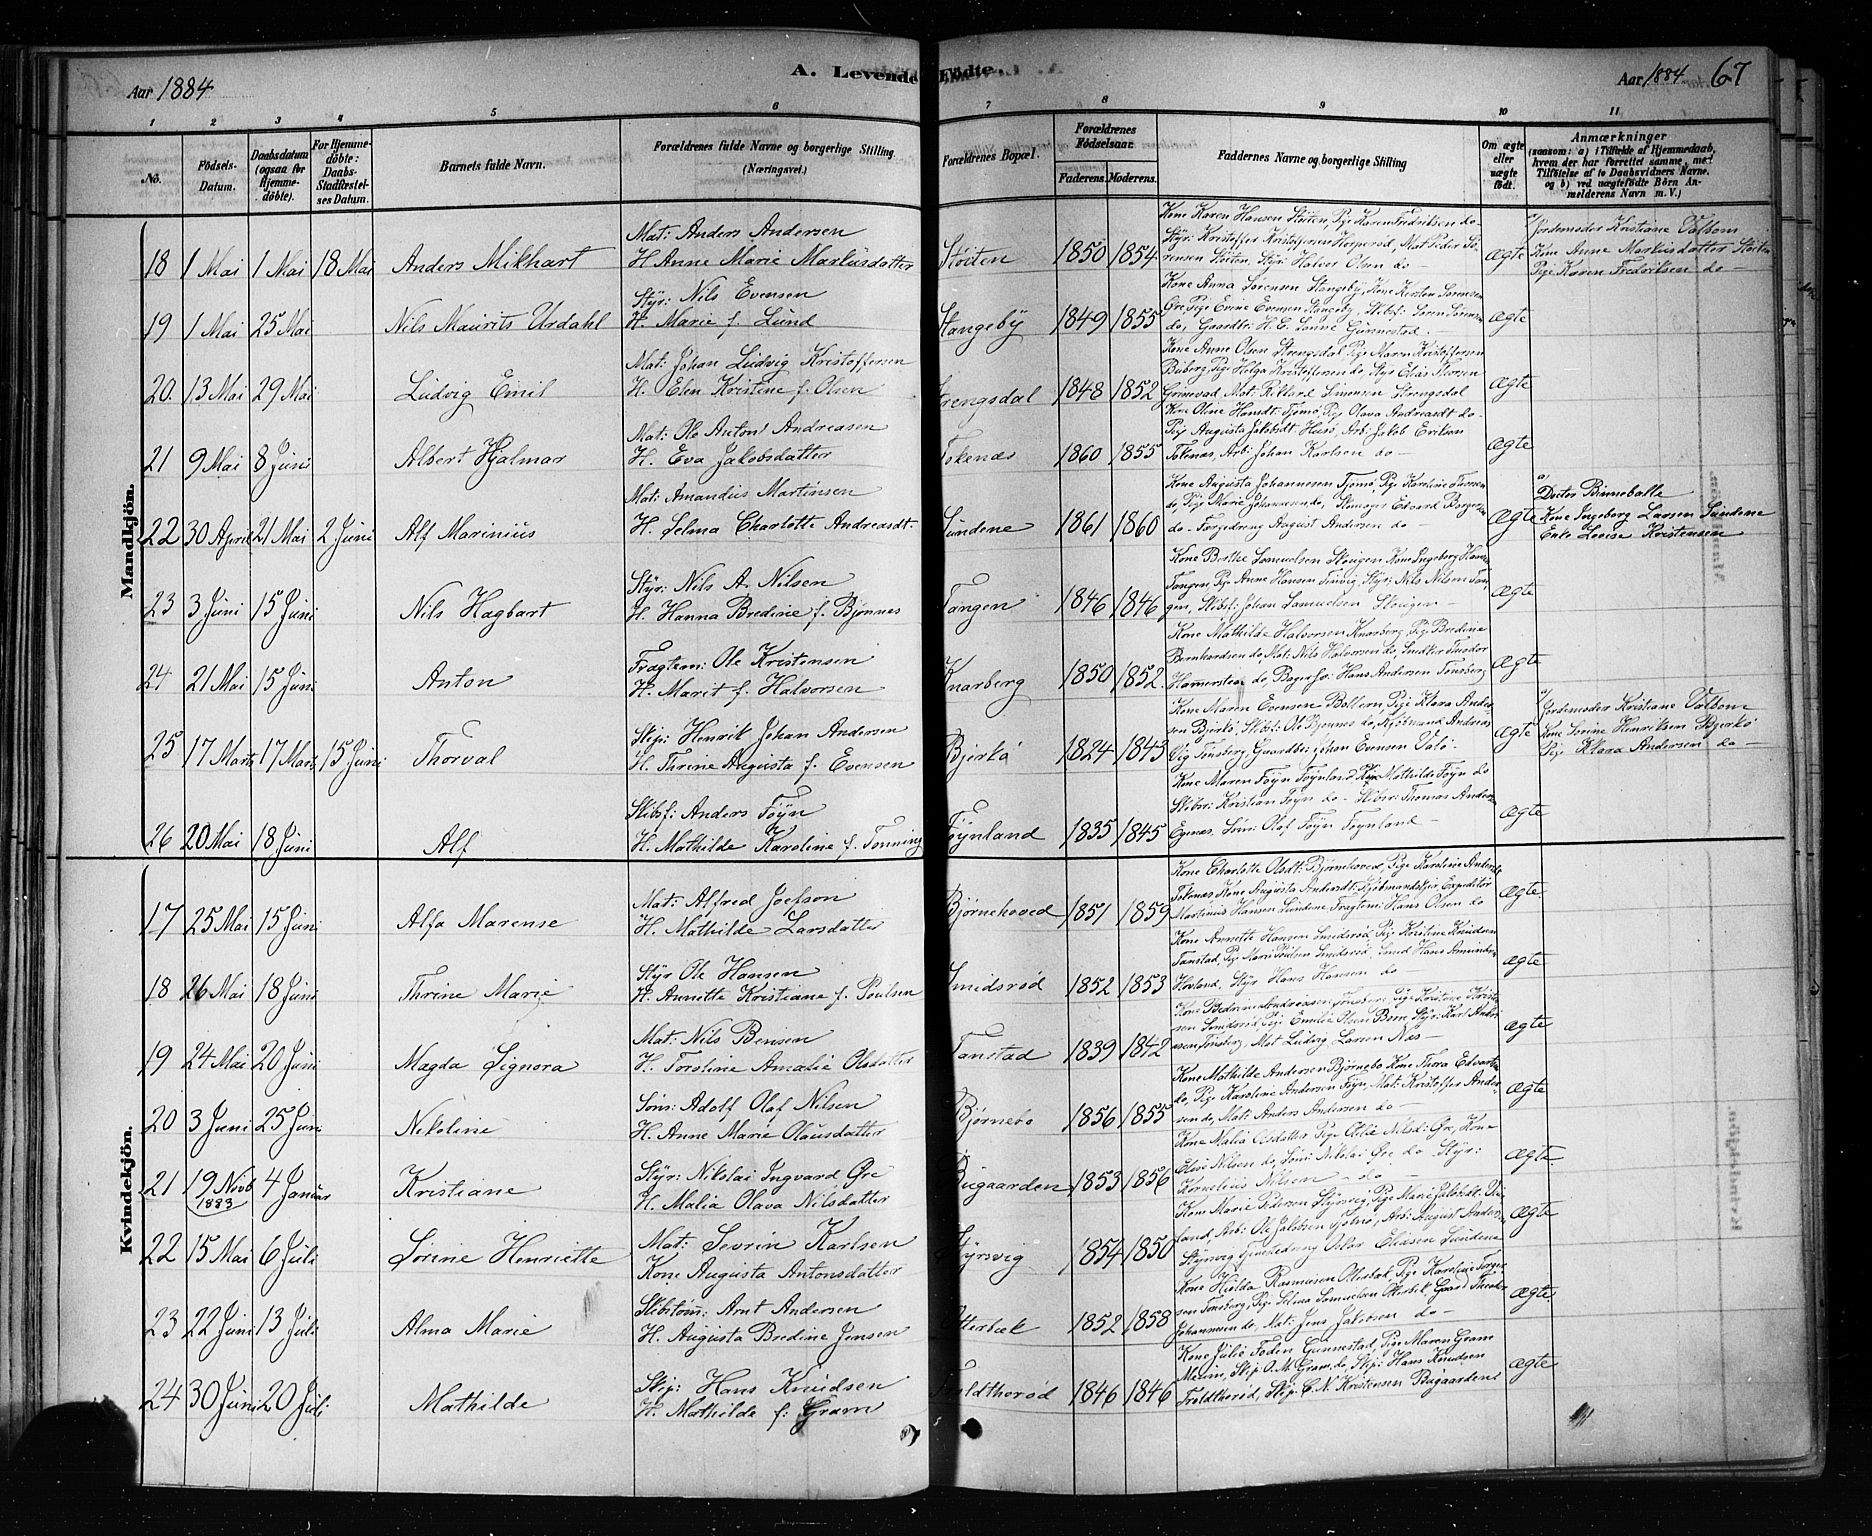 A. Levende Fødte.
Aar 1884
Aar 1884 67
1 2 3 4 5 6 7 8 9 10 11
No.
Fødsels-Datum.
Daabsdatum (ogsaa for Hjemmedøbte).
For Hjemmedøbte: Daabs-Stadfæstelses Datum.
Barnets fulde Navn.
Forældrenes fulde Navne og borgerlige Stilling (Næringsvei.)
Forældrenes Bopæl.
Forældrenes Fødselsaar. Faderens. Moderens.
Faddernes Navne og borgerlige Stilling
Om ægte eller uægte født.
Anmærkninger
(saasom: a) i Tilfælde af Hjemmedaab, hvem der har forrettet samme, med Tilføielse af to Daabsvidners Navne, og b) ved uægtefødte Børn Anmelderens Navn m. V.)
Mandkjön.
18 1 Mai 1 Mai 18 Mai Anders Mikhart
Mat: Anders Andersen
H Anne Marie Markusdatter
Støiten 1850 1854
Kone Karen Hansen Støiten, Pige Karen Fredriksen do
rensen Støiten, Styr: Halvor Olsen do
ægte
Jordemoder Kristiane Valbom
Kone Anne Markusdatter Støiten
Pige Karen Fredriksen do
19 1 Mai 25 Mai Nils Maurits Urdahl
Styr: Nils Evensen
H. Marie f. Lund
Stangeby 1849 1855
Kone Anna Sørensen Stangeby, Kone Kirsten Sørensen
do, Gaardbr: H. E. Sonne Gunnestad.
ægte
20. 13 Mai 29 Mai Ludvig Emil
Mat: Johan Ludvig Kristoffersen
H. Elen Kristine f. Olsen
Strengsdal 1848 1852
Kone Anne Olsen Strengsdal Pige Maren Kristoffersen
Buberg, Pige Helga Kristoffersen do
Grimestad, Mat: Rikkard Simonsen Strengsdal
ægte
21 9 Mai 8 Juni Albert Hjalmar
Mat: Ole Anton Andreasen
H. Eva Jakobsdatter
Tokenæs 1860 1855
Kone Oline Hansdt: Tjømø, Pige Olava Andreasdt do
Pige Augusta Jakobsdt Husø, Arb: Jakob Eriksen
Tokenæs, Arb: Johan Karlsen do
ægte
22 30 April 21 Mai 2 Juni Alf Marinius
Mat: Amandus Martinsen
H. Selma Charlotte Andreasdt.
Sundene 1861 1860
Kone Augusta Johannesen Tjømø, Pige Karoline
do Tørgedreng August Andersen do
ægte
Doctor Binneballe
Kone Ingeborg Larsen Sundene
Enke Lovise Kristensen
23 3 Juni 15 Juni Nils Hagbart
Styr: Nils A. Nilsen
H. Hanna Bredine f. Bjønnes
Tangen 1846 1846
Kone Berthe Samuelsen Skougen Kone Ingeborg Hansen
Tangen, Pige Anne Hansen Tinvig, Styr: Nils Nilsen Tan
gen, Skibst: Johan Samuelsen Skougen
ægte
24 21 Mai 15 Juni Anton
Fragtem: Ole Kristensen
H. Marit f. Halvorsen
Knarberg 1850 1852.
Kone Mathilde Halvorsen Knarberg, Pige Bredine
Bernhardsen do, Mat: Nils Halvorsen do, Snedker Theodor
Hans Andersen Tønsberg
ægte
25 17 Marts 17 Marts 15 Juni Thorval
Skip: Henrik Johan Andersen
H. Thrine Augusta f. Evensen
Bjerkø 1824 1843
Kone Maren Evensen Bollern, Pige Klara Ander
sen Bjerkø, Skibst: Ole Bjønnes do, Kjøbmand Andersen
Vig Tønsberg Gaardbr: Johan Evensen Valø.
ægte
Jordemoder Kristiane Valbom
Kone Sørine Henriksen Bjerkø
Pige Klara Andersen do
26 20 Mai 18 Juni Alf
Skibsf: Anders Föyn
H. Mathilde Karoline f. Tonning
Föynland 1835 1845
Kone Maren Foyn Foynland Pige Mathilde Föyn do
Skibsr: Kristian Foyn do Skibsr: Thomas Andersen
Olaf Föyn Foynland
ægte
Kvindekjön.
17 25 Mai 15 Juni Alfa Marense
Mat: Alfred Joefson
H. Mathilde Larsdatter
Bjørnehoved 1851 1859
Kone Charlotte Olsdt: Bjørnehoved, Pige Karoline Andersdt
Tokenæs Kone Augusta Andersdt: Kjöbmandskjær, Expeditør
Martinius Hansen Sundene Fragtem: Hans Olsen do
ægte.
18 26 Mai 18 Juni Thrine Marie
Styr Ole Hansen
H. Annette Kristiane f. Poulsen
Smidsrød 1852 1853
Kone Annette Hansen Smidsrød Pige Kristine Knudsen
Tanstad, Pige Marie Poulsen Smidsrød, Smed Hans Amundsen
Hovland, Styr Hans Hansen do
ægte
19 24 Mai 20 Juni Magda Signora
Mat: Nils Bensen
H. Toroline Amalie Olsdatter
Tanstad 1839 1842
Kone Bedrine Andreasen Tønsberg, Pige Kristine Kristen
sen Smidsrød, Pige Emilie Olsen Børn Styr: Karl Andre
asen Tønsberg, Mat Ludvig Larsen Næs
ægte
20 3 Juni 25 Juni Nikoline
Søm: Adolf Olaf Nilsen
H. Anne Marie Olausdatter
Bjørnebo 1856 1855
Kone Mathilde Andersen Bjørnebo Kone Thora Edvartsen
do, Pige Karoline Andersen Föyn, Mat: Kristoffer Ander
sen do, Mat: Anders Andersen do
ægte
21 19 Novb 1883 4 Januar Kristiane
Styr: Nikolai Ingvard Øre
H. Malia Olava Nilsdatter
Bugaarden 1853 1856
Kone Malia Olsdatter Pige Olelie Nilsd: Øre, Kone
Elise Nilsen do, Søm: Nikolai Øre do Styr:
Kornelius Nilsen do
ægte.
22 15 Mai 6 Juli Sørine Henriette
Mat: Sevrin Karlsen
Kone Augusta Antonsdatter
Styrsvig 1854 1850
Kone Marie Pedersen Styrsvig, Pige Marie Jakobsdt: Vis
land, Arb: Ole Jakobsen Tjømø, Arb: August Andersen
Styrsvig Gjætedreng Oskar Eliasen Sundene
ægte
23 22 Juni 13 Juli Alma Marie
Skibstøm: Arnt Andersen
H. Augusta Bredine Jensen
Otterbæk 1852 1858
Kone Hilda Rasmusen Otterbæk, Pige Karoline Jørgen
sen Tønsberg, Pige Selina Samuelsen Otterbek, Gaard
Johannesen do, Mat: Jens Jakobsen do
ægte.
24 30 Juni 20 Juli Mathilde
Skip: Hans Knudsen
H. Mathilde f: Gram
Troldthorød 1846 1846
Kone Julie Foden Gunnestad, Pige Maren Gram
Melum, Skip: O. M. Gram do, Skip: Hans Knudsen
Troldthorød, Skip: C. N. Kristensen Bugaarden
ægte